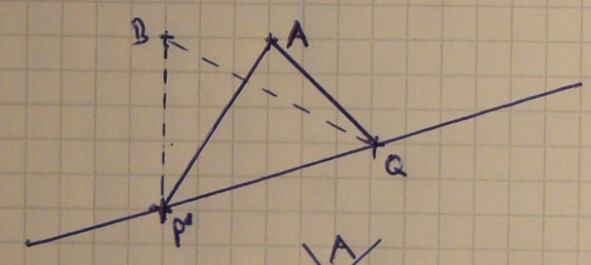 B
A
Q
P
A